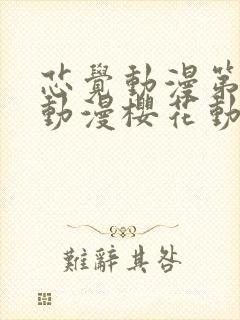 芯覺動漫第
動漫櫻花動
難辭其咎